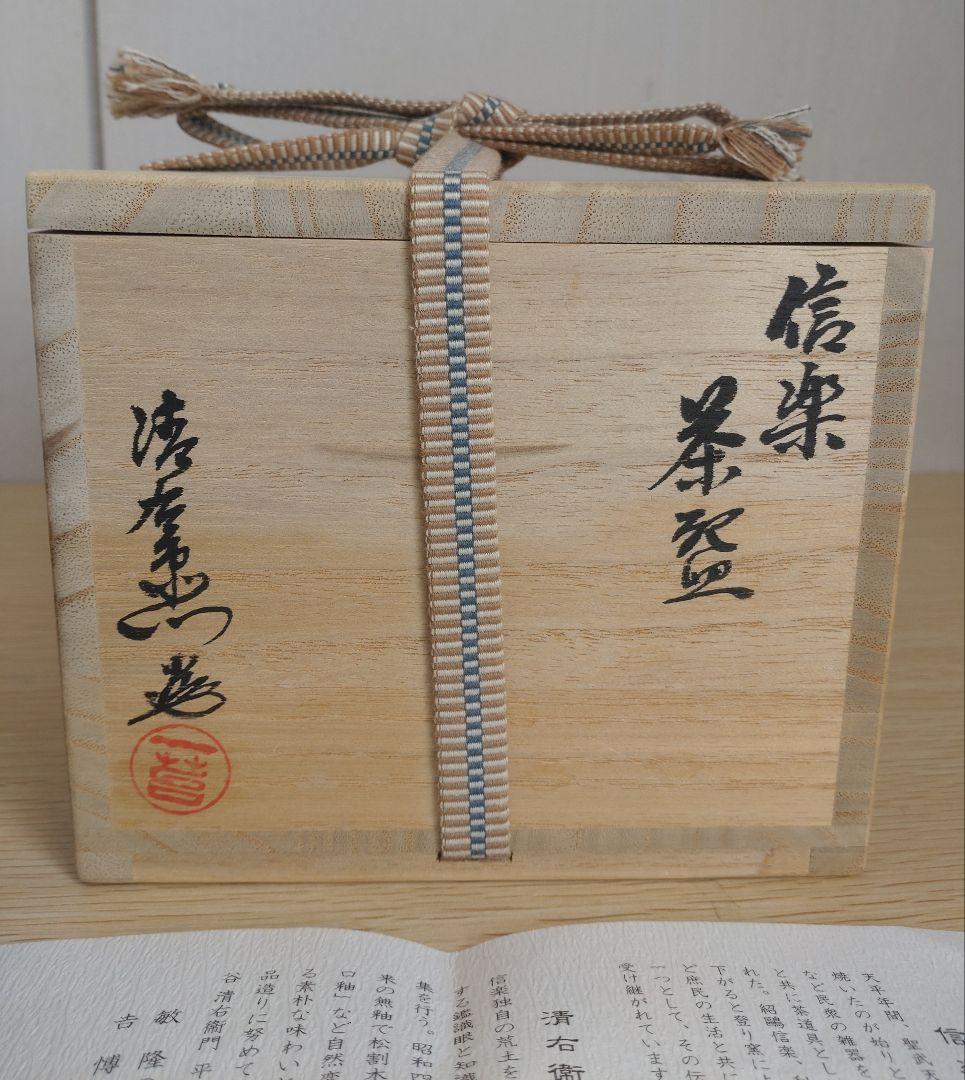 信楽
茶盌
清右衛門
造
信
天平年間、聖武天
焼いたのが始りと
など民衆の雑器を
と共に茶道具とし
れた。紹鷗信楽、
下がると登り窯に
ど庶民の生活と共に
一つとして、その伝
受け継がれています
清右衛
信楽独自の荒土を
する鑑識眼と知識
集を行う。昭和四
来の無釉で松割木
口釉」など自然
る素朴な味わい
品造りに努めて
谷 清右衛門 平
敏隆
吉博